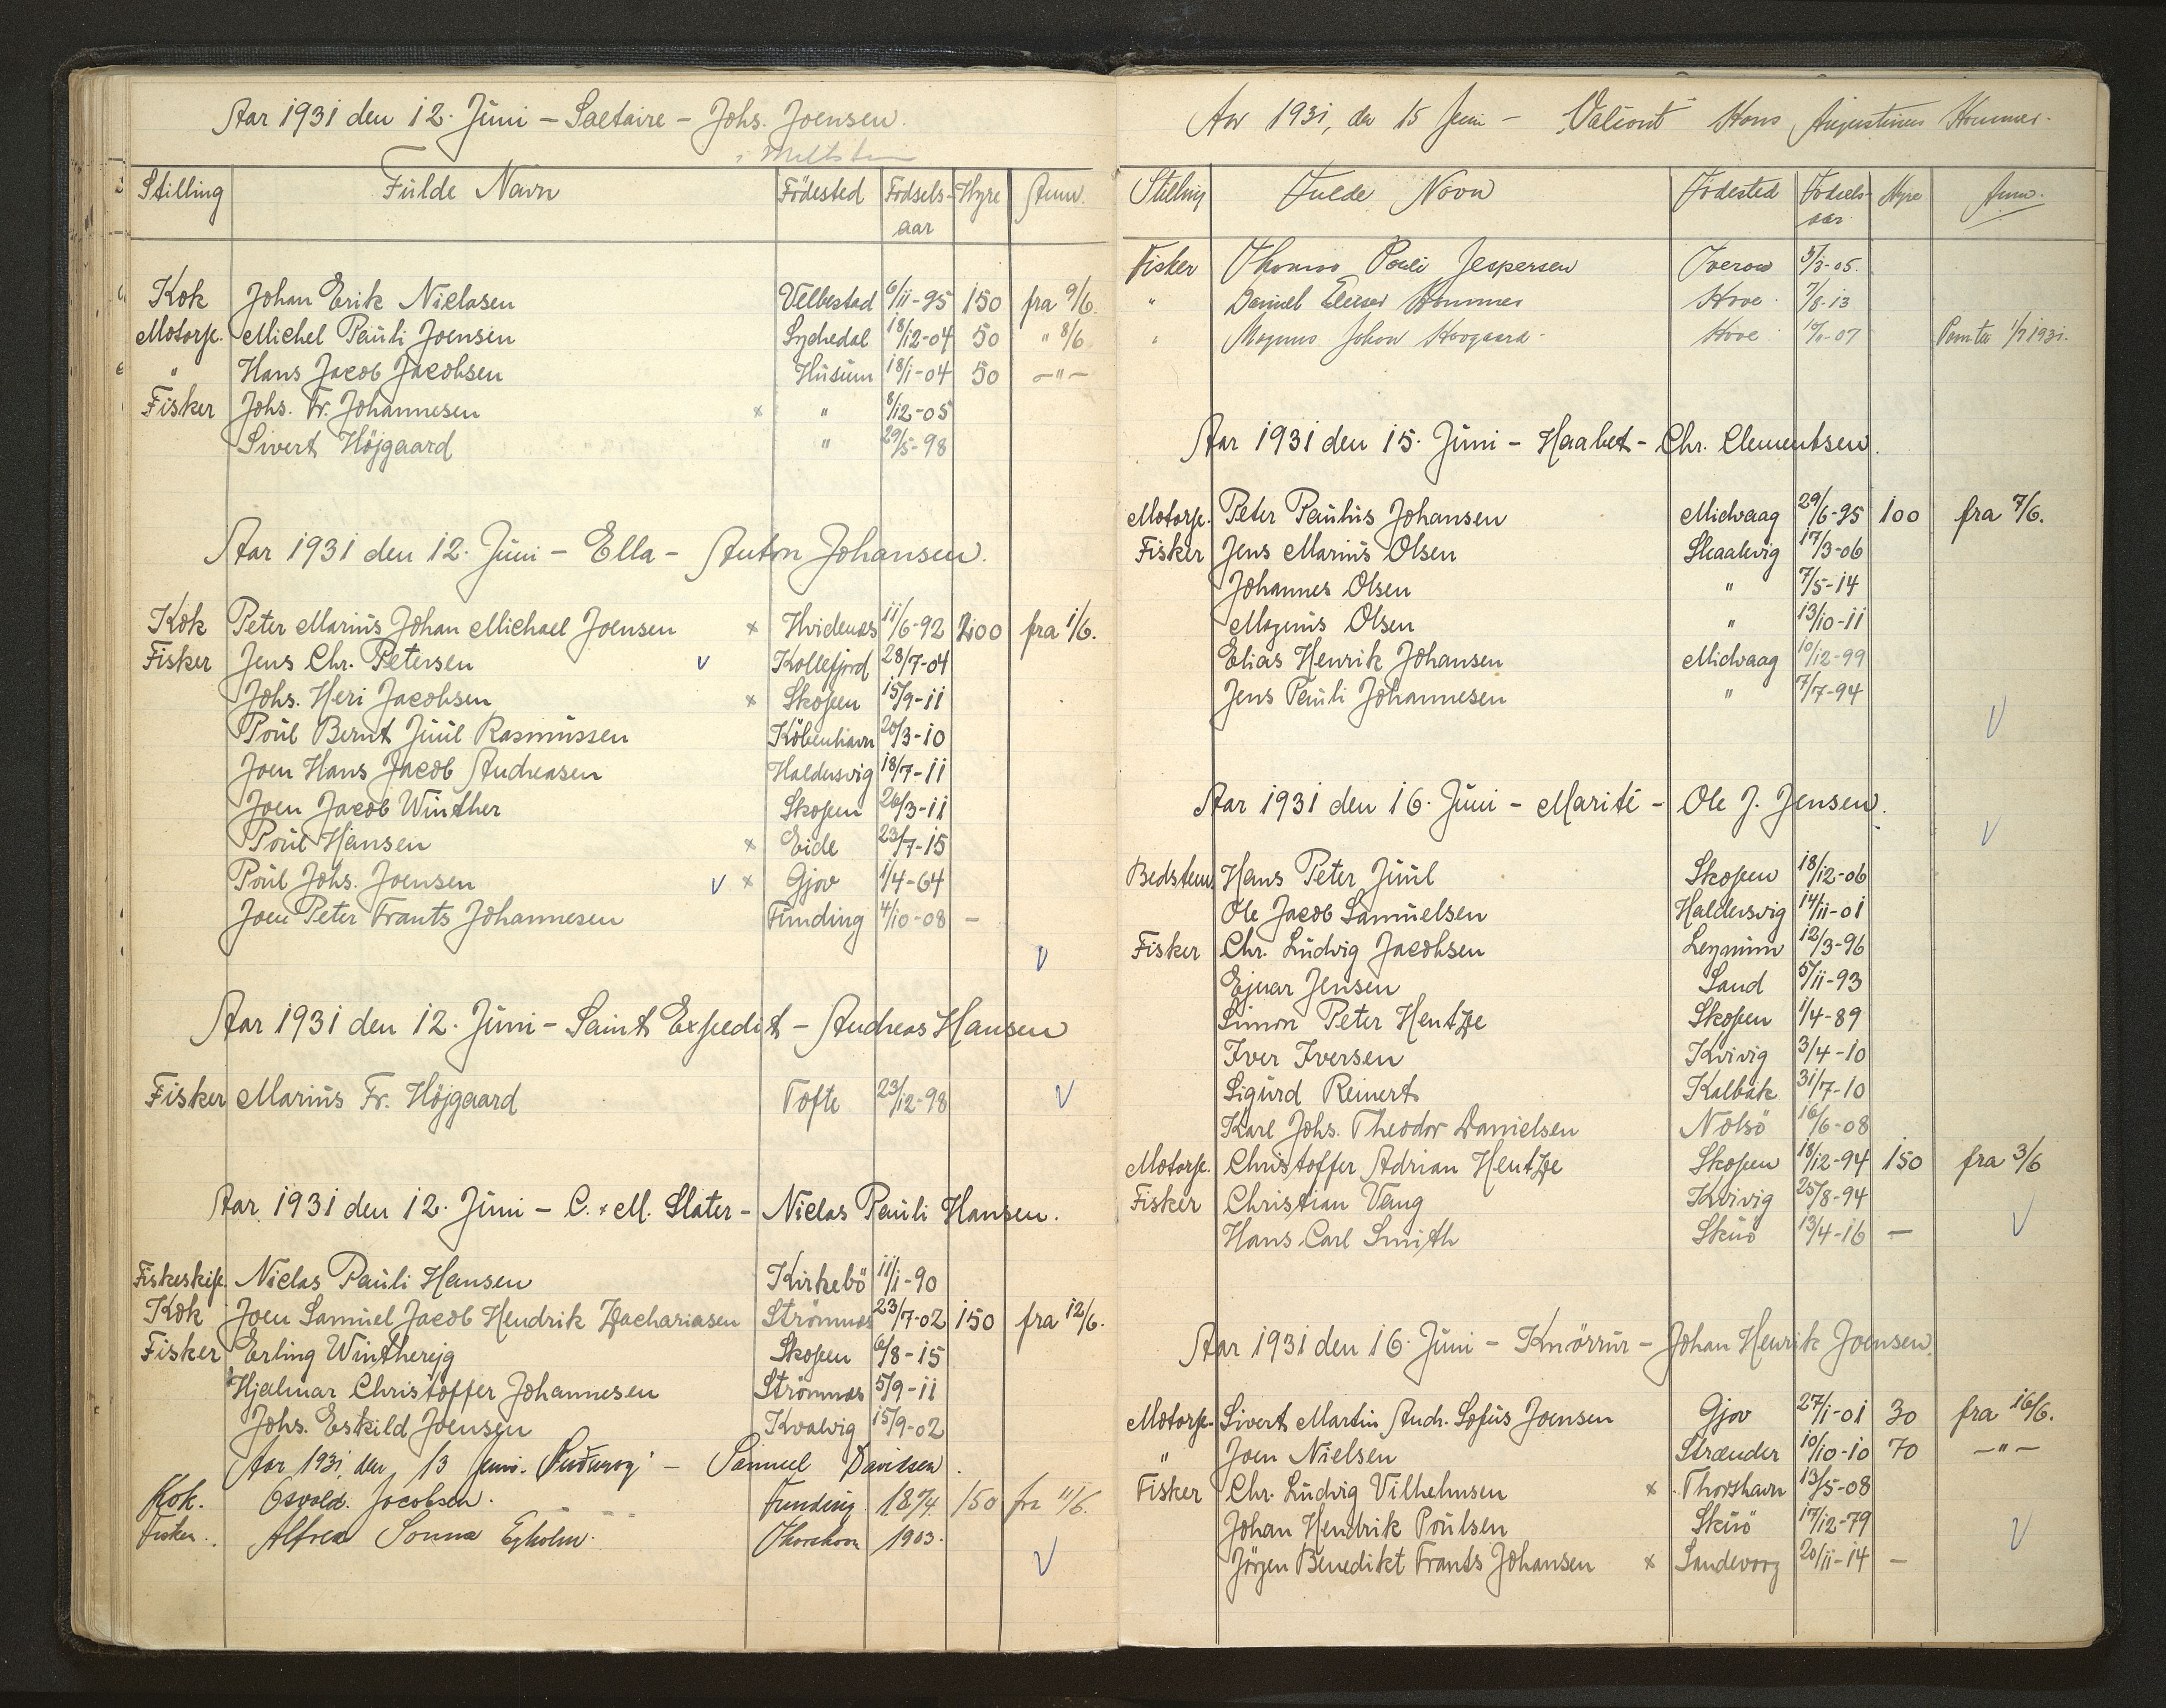 Aar 1931 den 12. Júni – Saltaire – Johs. Joensen.
Stilling Fúlde Navn Födested Födsels-aar Hyre Anm.
Kok Johan Erik Niclasen Velbestad 6/11-95 150 fra 9/6.
Motorp. Michel Paúli Joensen Sydredal 18/12-04 50 " 8/6
" Hans Jacob Jacobsen Húsúm 18/1-04 50 -"-
Fisker Johs. Fr. Johannesen x " 8/12-05
Sivert Höjgaard " 29/5-98
Aar 1931 den 12. Júni – Ella – Anton Johansen.
Kok Peter Mariús Johan Michael Joensen x Hvidenæs 11/6-92 200 fra 1/6.
Fisker Jens Chr. Petersen v Kollefjord 28/7-04
Johs. Heri Jacobsen x Skopen 15/9-11
Poúl Bernt Júúl Rasmússen Köbenhavn 20/3-10
Joen Hans Jacob Andreasen Haldersvig 18/7-11
Joen Jacob Winther Skopen 26/3-11
Poúl Hansen x Eide 23/7-15
Poúl Johs. Joensen v x Gjov 1/4-64
Joen Peter Frants Johannesen Fúnding 4/10-08 –
v
Aar 1931 den 12. Júni – Saint Expedit – Andreas Hansen
Fisker Mariús Fr. Höjgaard Tofte 23/12-98 v
Aar 1931 den 12. Júni – C. & M. Slater – Niclas Paúli Hansen.
Fiskeskip. Niclas Paúli Hansen Kirkebö 11/1-90
Kok Joen Samúel Jacob Hendrik Zachariasen Strömnæs 23/7-02 150 fra 12/6.
Fisker Erling Wintherejg Skopen 6/8-15
Hjalmar Christoffer Johannesen Strömnæs 5/9-11
Johs. Eskild Joensen Kvalvig 15/9-02
Aar 1931, den 13 Juni. – Samuel Davidsen.
Kok. Osvald. Jacobsen. Funding. 1874. 150 fra 11/6.
Fisker. Alfred Egholm. Thorshavn 1903.
v
Aar 1931, den 15 Juni – Valiant Hans Augustinus Hammer.
Stilling Fulde Navn Födested Födsels-aar Hyre Anm.
Fisker Thomas Pauli Jespersen Sverow 5/3-05.
" Daniel Elieser Hammer Hove 7/8-13
" Magnus Johan Hovgaard Hove 1931.
Aar 1931 den 15. Júni – Haabet – Chr. Clementsen.
Motorp. Peter Paúlús Johansen Midvaag 29/6-95 100 fra 7/6.
Fisker Jens Mariús Olsen Skaalvig 17/3-06
Johannes Olsen " 7/5-14
Magnús Olsen " 13/10-11
Elias Henrik Johansen Midvaag 10/12-99
Jens Paúli Johannesen " 7/7-94
v
Aar 1931 den 16. Júni – Marité – Ole J. Jensen.
v
Bedstem. Hans Peter Júúl Skopen 18/12-06
Ole Jacob Samúelsen Haldersvig 14/11-01
Fisker Chr. Lúdvig Jacobsen Leynúm 12/3-96
Ejnar Jensen Sand 5/11-93
Simon Peter Hentze Skopen 1/4-89
Iver Iversen Kvivig 3/4-10
Sigúrd Reinert Kalbak 31/7-10
Karl Johs. Theodor Danielsen Nolsö 16/6-08
Motorp. Christoffer Adrian Hentze Skopen 18/12-94 150 fra 3/6
Fisker Christian Vang Kvivig 25/8-94
Hans Carl Smith Skúö 13/4-16 – v
Aar 1931 den 16. Júni – Knörrúr – Johan Henrik Joensen.
Motorp. Sivert Martin Andr. Sofús Joensen Gjov 27/1-01 30 fra 16/6.
" Joen Nielsen Strænder 10/10-10 70 -"-
Fisker Chr. Lúdvig Vilhelmsen x Thorshavn 13/5-08
Johan Hendrik Poúlsen Skúö 17/12-79 v
Jörgen Benedikt Frants Johansen x Sandevaag 20/11-14 –